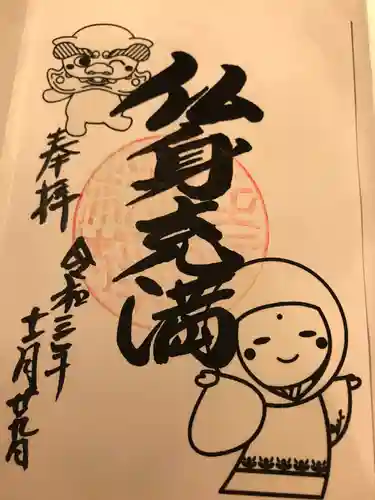 仏身充満
奉拝
令和三年
十二月廿九日